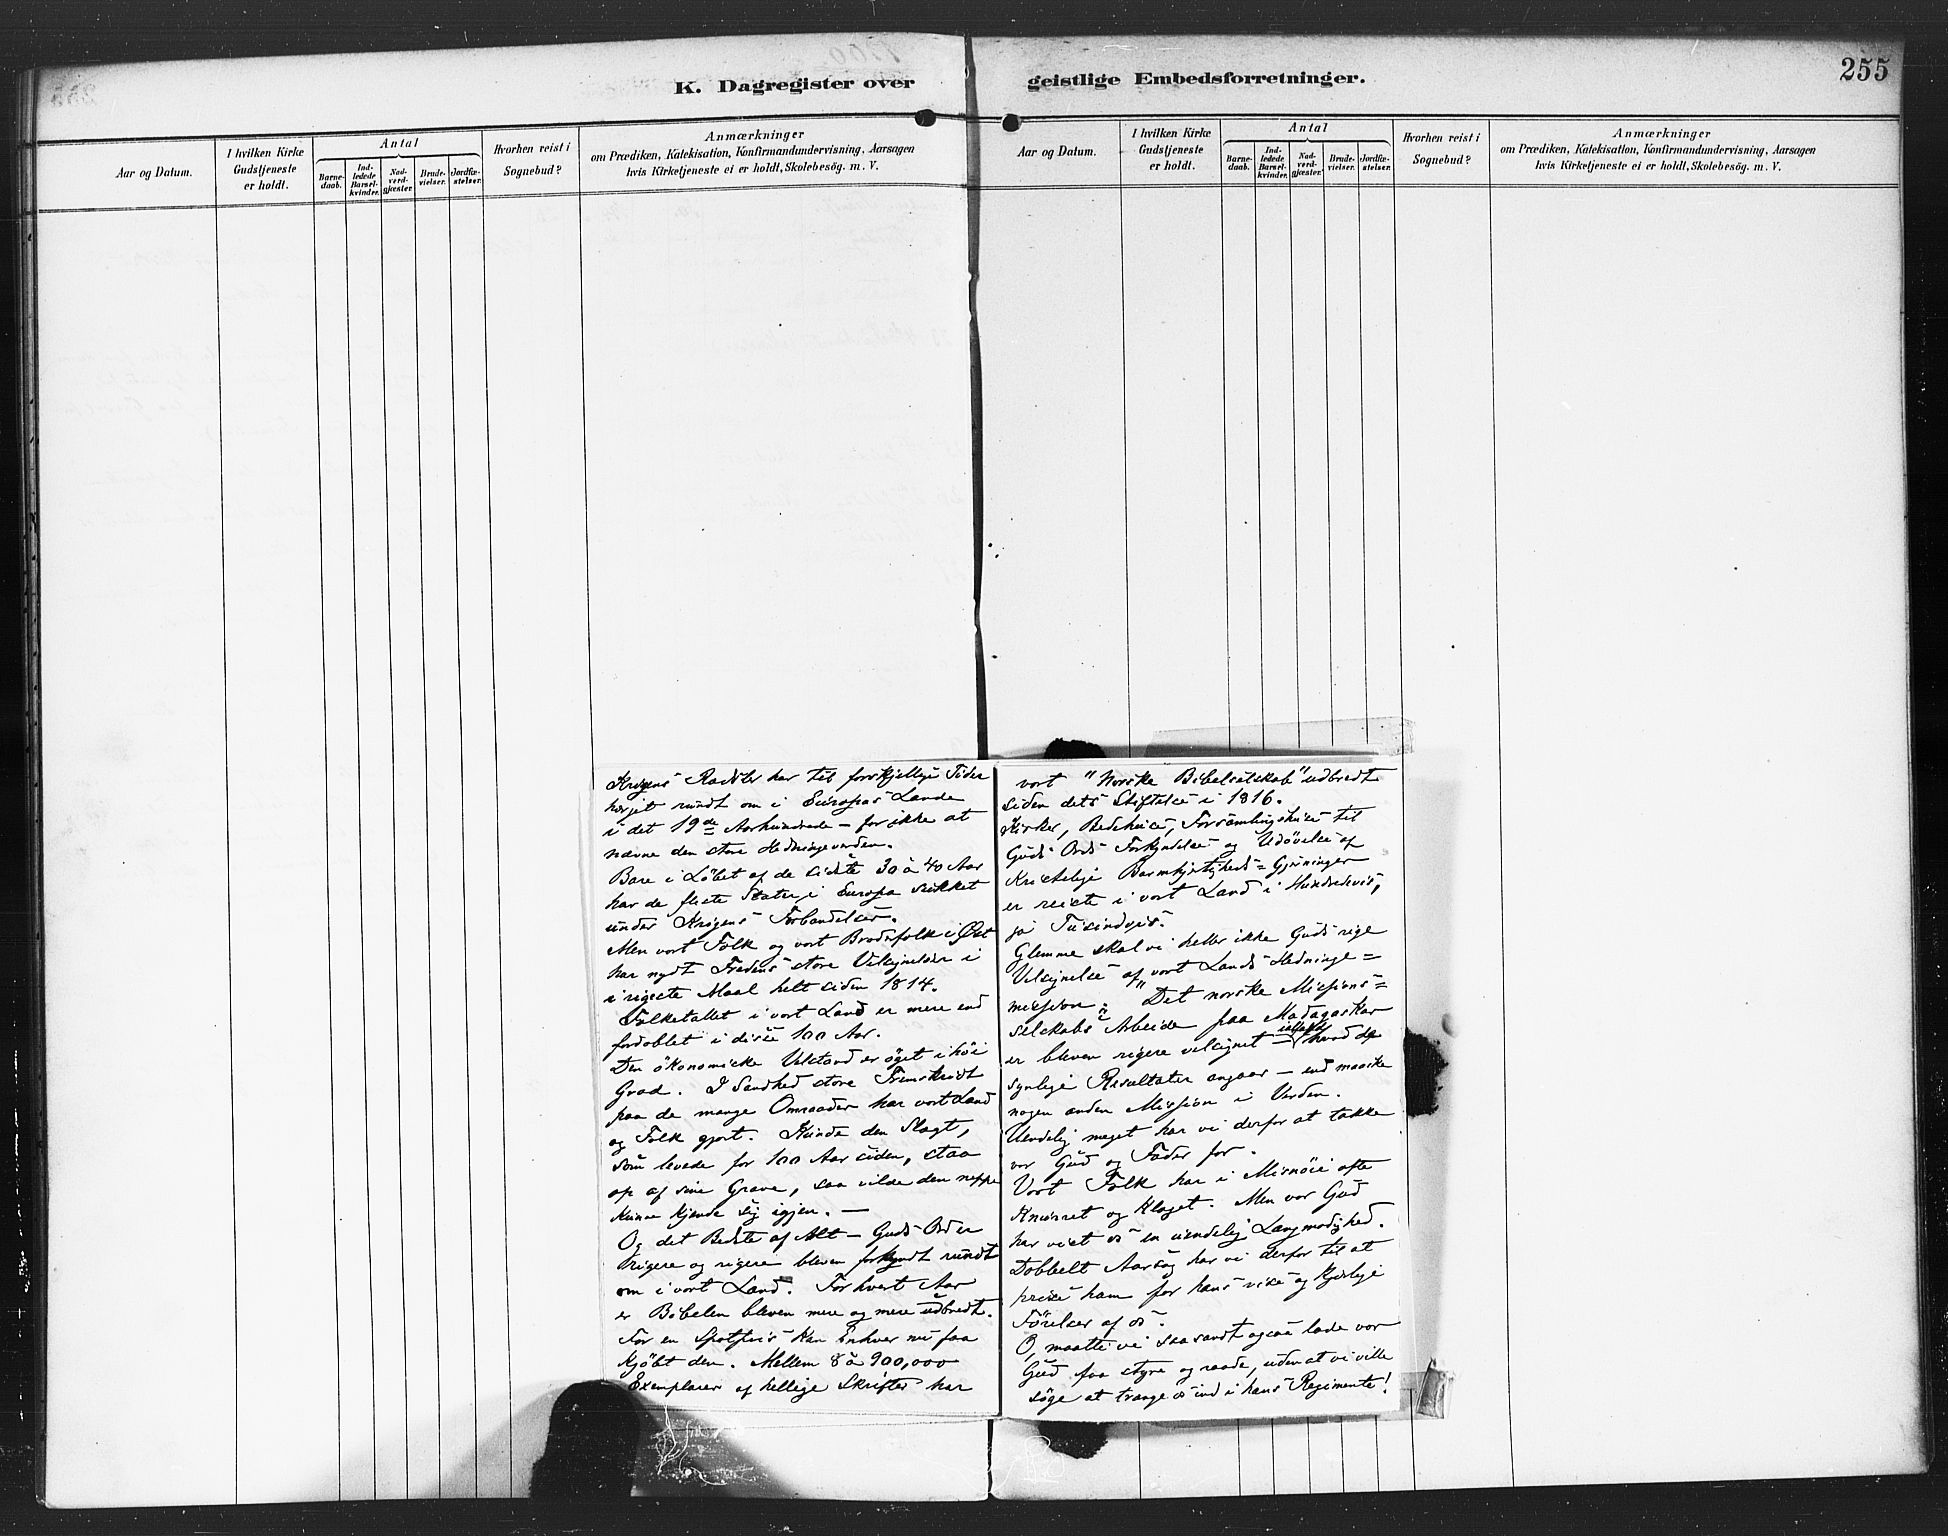 K. Dagregister over geistlige Embedsforretninger.
255
Aar og Datum.
I hvilken Kirke
Gudstjeneste
er holdt.
Antal
Barne-
daab.
Ind-
ledede
Barsel-
kvinder.
Nad-
verd-
gjæster.
Brude-
vielser.
Jordfæ-
stelser.
Hvorhen reist i
Sognebud?
Anmærkninger
om Prædiken, Katekisation, Konfirmandundervisning, Aarsagen
hvis Kirketjeneste ei er holdt, Skolebesög. m. V.
Aar og Datum.
I hvilken Kirke
Gudstjeneste
er holdt.
Antal
Barne-
daab.
Ind-
ledede
Barsel-
kvinder.
Nad-
verd-
gjæster.
Brude-
vielser.
Jordfæ-
stelser.
Hvorhen reist i
Sognebud?
Anmærkninger
om Prædiken, Katekisation, Konfirmandundervisning, Aarsagen
hvis Kirketjeneste ei er holdt, Skolebesög. m. V.
Krigens Rædsler har til forskjellige Tider
herjet rundt om i Europas Lande
i det 19de Aarhundrede – for ikke at
nævne den store Hedningeverden.
Bare i Løbet af de sidste 30 à 40 Aar
har de fleste Stater i Europa sukket
under Krigens Forbandelser.
Men vort Folk og vort Broderfolk i Øst
har nydt Fredens store Velsignelser i
rigeste Maal helt siden 1814.
Folketallet i vort Land er mere end
fordoblet i disse 100 Aar.
Den økonomiske Velstand er øget i høi
Grad. I Sandhed store Fremskridt
paa de mange Omraader har vort Land
og Folk gjort. Kunde den Slægt,
som levede for 100 Aar siden, staa
op af sine Grave, saa vilde den neppe
kunne kjende sig igjen. –
Og det Bedste af Alt – Guds Ord er
rigere og rigere bleven forkyndt rundt
om i vort Land. For hvert Aar
er Bibelen bleven mere og mere udbredt.
For en Spotpris kan Enhver nu faa
kjøbt den. Mellem 8 à 900,000
Exemplarer af hellige Skrifter har
vort "Norske Bibelselskab" udbredt
siden dets Stiftelse i 1816.
Kirker, Bedehuse, Forsamlingshuse til
Guds Ords Forkyndelse og Udøvelse af
Kristelige Barmhjertigheds-Gjerninger
er reiste i vort Land i Hundredevis,
ja Tusindvis.
Glemme skal vi heller ikke Guds rige
Velsignelse af vort Lands Hedninge=
mission: "Det norske Missions=
selskabs" Arbeide paa Madagaskar
er bleven rigere velsignet – ialfald hvad de
synlige Resultater angaar – end maaske
nogen anden Mission i Verden.
Uendelig meget har vi derfor at takke
vor Gud og Fader for.
Vort Folk har i Misnøie ofte
knurret og klaget. Men vor Gud
har vist os en uendelig Langmodighed.
Dobbelt Aarsag har vi derfor til at
prise ham for hans vise og kjærlige
Førelser af os.
O, maatte vi saa sandt ogsaa lade vor
Gud faa styre og raade, uden at vi ville
søge at trænge os ind i hans Regimente!